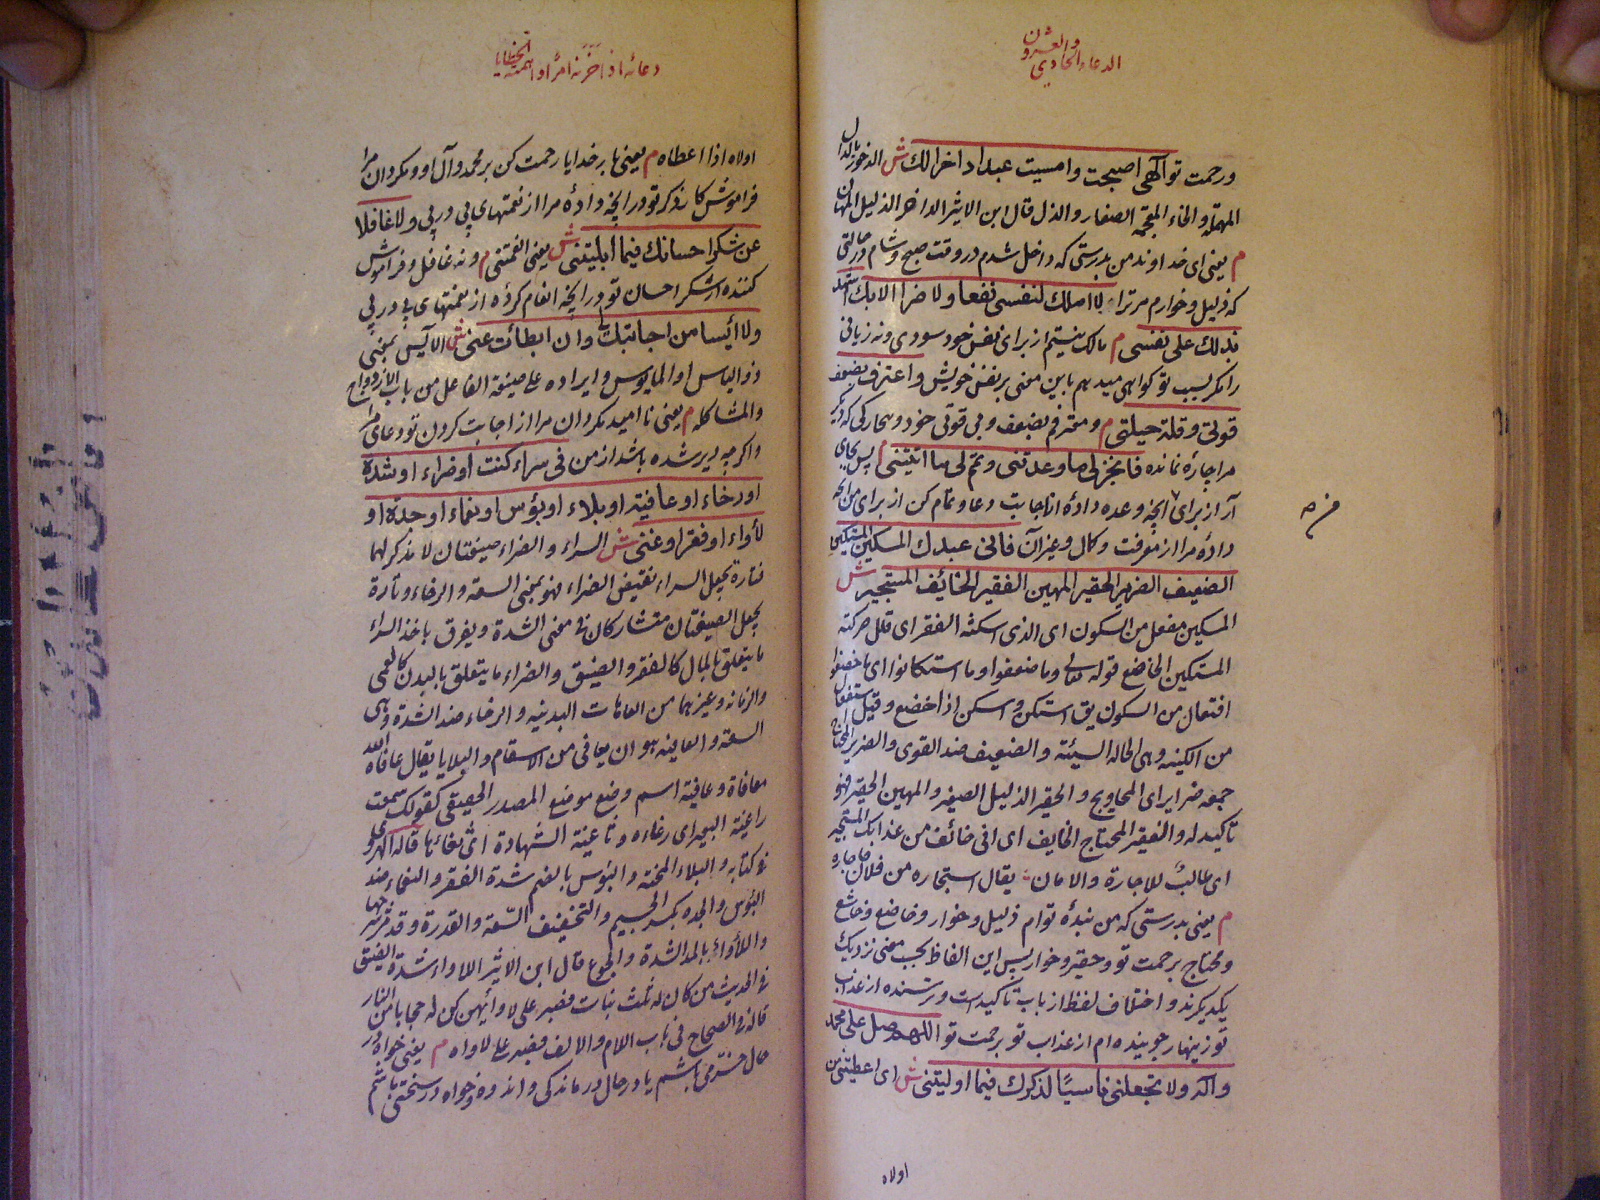 الدعاء الحادي والعشرون
ورحمت تو الهی اصبحت وامسیت عبدا داخرا لك ش الدخور بالدال
المهملة والخاء المعجمة الصغار والذل قال ابن الاثیر الداخر الذلیل المهان
م یعنی ای خداوند من بدرستی که داخل شدم در وقت صبح وشام در حالتی
که ذلیل وخوارم مر ترا لا املك لنفسی نفعا ولا ضرا الا بك اشهد
بذلك علی نفسی م مالک نیستم از برای نفس خود سودی ونه زیانی
را مگر بسبب تو گواهی میدهم باین معنی بر نفس خویش واعترف بضعف
قوتی وقلة حیلتی م ومعترفم بضعف وبی قوتی خود وبیچارگی که دیگر
مرا چارهٔ نمانده فانجز لی ما وعدتنی وتمم لی ما اتیتنی م پس بجای
آر از برای آنچه وعده دادهٔ از اجابت دعا وتمام کن از برای من آنچه
دادهٔ مرا از معرفت وکمال وغیر آن فانی عبدك المسکین المستکین
الضعیف الضریر الحقیر المهین الفقیر الخائف المستجیر ش
المسکین مفعل من السکون ای الذی اسکنه الفقر ای قلل حرکته
المستکین الخاضع قوله تعالی وما ضعفوا وما استکانوا ای ما خضعوا
افتعال من السکون یق استکن واسکن اذا خضع وقیل استفعال
من الکینه وهی الحالة السیئة والضعیف ضد القوی والضریر المحتاج
جمعه ضرایر ای المحاویج والحقیر الذلیل الصغیر والمهین الحقیر فهو
تاکید له والفقیر المحتاج الخایف ای انی خائف من عذابك المستجیر
ای طالب للاجارة والامان یقال استجاره من فلان فاجاره
م یعنی بدرستی که من بندهٔ توام ذلیل وخوار وخاضع وخاشع
ومحتاج برحمت تو وحقیر وخوار پس این الفاظ بحسب معنی نزدیک
یکدیگرند واختلاف لفظ از باب تاکیدست وترسنده از عذاب
تو زینهار جوینده ام از عذاب تو برحمت تو اللهم صل علی محمد
واله ولا تجعلنی ناسیًا لذکرك فیما اولیتنی ش ای اعطیتنی من
اولاه
دعائه اذا حزنه امر او اهمته الخطایا
اولاه اذا اعطاه م یعنی بار خدایا رحمت کن بر محمد وآل او ومگردان مرا
فراموش کار ذکر تو در آنچه دادهٔ مرا از نعمتهای پی در پی ولا غافلا
عن شکر احسانك فیما ابلیتنی ش یعنی انعمتنی م ونه غافل وفراموش
کننده از شکر احسان تو در آنچه انعام کردهٔ از نعمتهای پی در پی
ولا آیسا من اجابتك لی وان ابطأت عنی ش الآیس بمعنی
ذو الیاس او المایوس وایراده علی صیغة الفاعل من باب الازدواج
والمشاکله م یعنی نا امید مگردان مرا از اجابت کردن تو دعای مرا
واگرچه دیر شده باشد از من فی سراء کنت او ضراء او شدة
او رخاء او عافیة او بلاء او بؤس او نعماء او جدة او
لأواء او فقر او غنی ش السراء والضراء صیغتان لا مذکر لهما
فتارة یجعل السراء نقیض الضراء فهو بمعنی السعة والرخاء وتارة
یجعل الصیغتان متشارکان فی معنی الشدة ویفرق باخذ السراء
ما یتعلق بالمال کالفقر والضیق والضراء ما یتعلق بالبدن کالعمی
والزمانه وغیرهما من العاهات البدنیه والرخاء ضد الشدة وهی
السعة والعافیه هو ان یعافی من الاسقام والبلایا یقال عافاه الله
معافاة وعافیة اسم وضع موضع المصدر الحقیقی کقولك سمعت
راغیة البعیر ای رغاءه وثاغیة الشاة ای ثغائها قاله الهروی
فی کتابه والبلاء المحنة والبؤس بالضم شدة الفقر والنعماء ضد
البؤس والجده بکسر الجیم والتخفیف السّعة والقدرة وقد مر شرحها
واللأواء بالمد الشدة والجوع قال ابن الاثیر اللاواء شدة الضیق
فی الحدیث من کان له ثلث بنات فصبر علی لاوائهن کن له حجابا من النار
قاله فی الصحاح فی باب اللام والالف فصبر علی لاواه م یعنی خواه در
حال خرمی باشم یا در حال درماندگی واندوه وخواه در سختی باشم